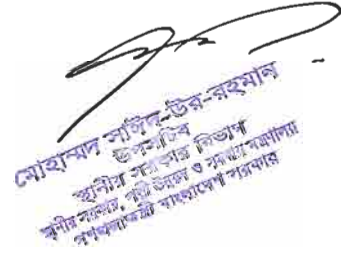 মোহাম্মদ সাঈদ-উর-রহমান
উপসচিব
স্থানীয় সরকার বিভাগ
স্থানীয় সরকার, পল্লী উন্নয়ন ও সমবায় মন্ত্রণালয়
গণপ্রজাতন্ত্রী বাংলাদেশ সরকার